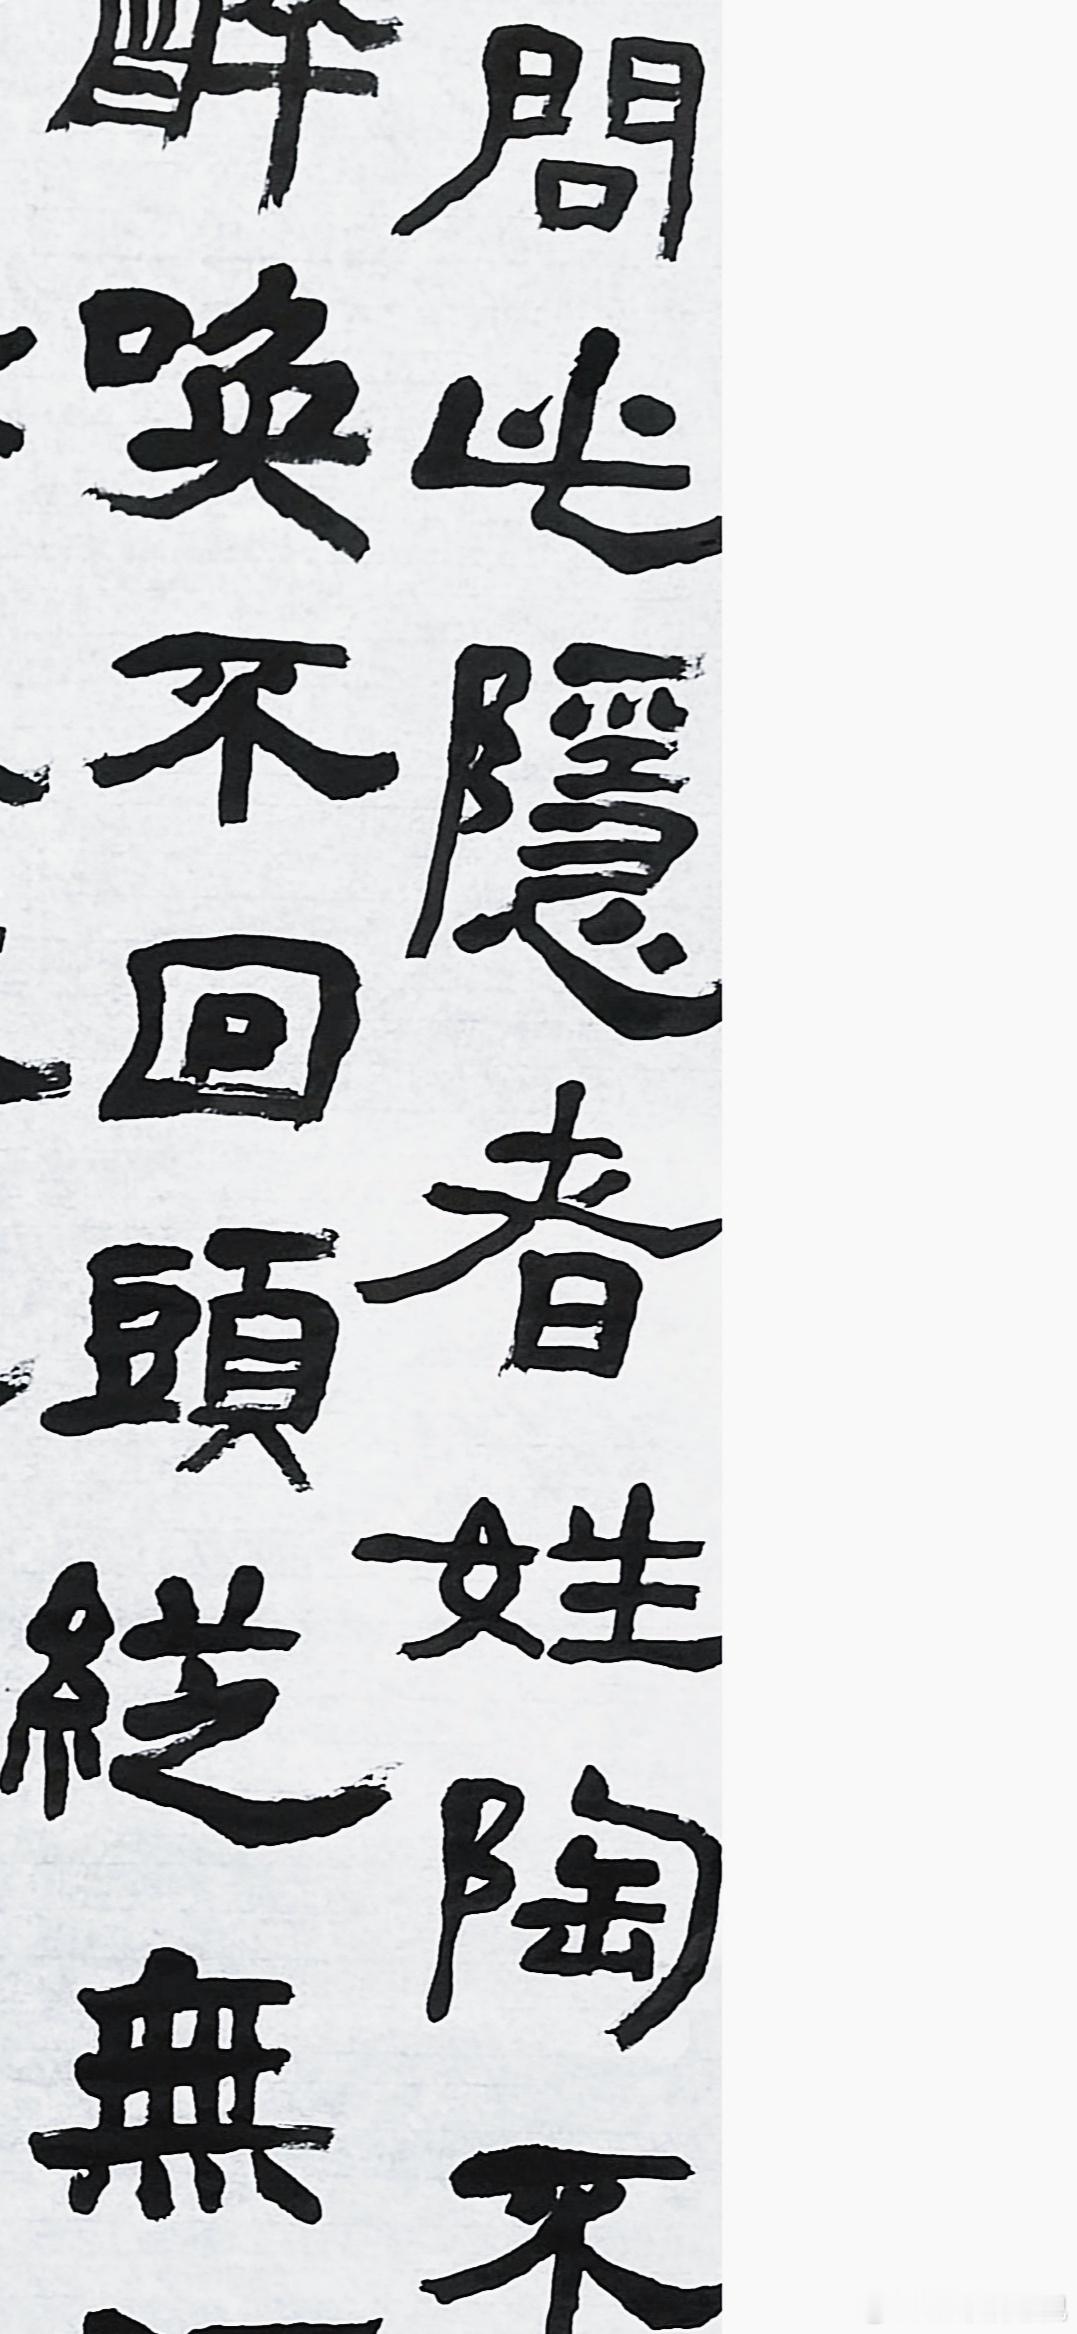 問此隱者姓陶不
醉喚不回頭縱無